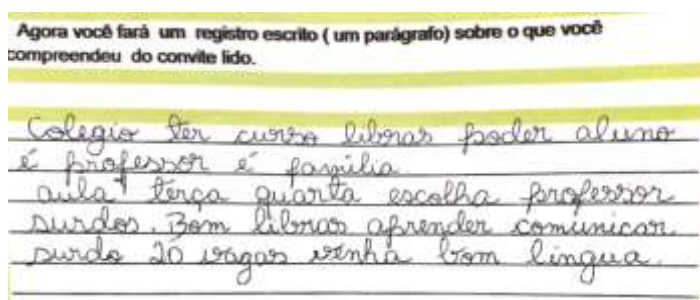 Agora você fará um registro escrito ( um parágrafo) sobre o que você
compreendeu do convite lido.
Colegio ter curso libras poder aluno
é professor é família.
aula terça quarta escolha professor
surdos. Bom libras aprender comunicar
surdo 20 vagas venha bom lingua.